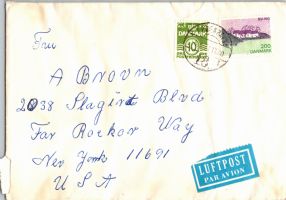 Fru
A Brown
2038 Slagirt Blvd
Far Rockor Way
New York 11691
U S A
DANMARK
10
200
DANMARK
LUFTPOST
PAR AVION